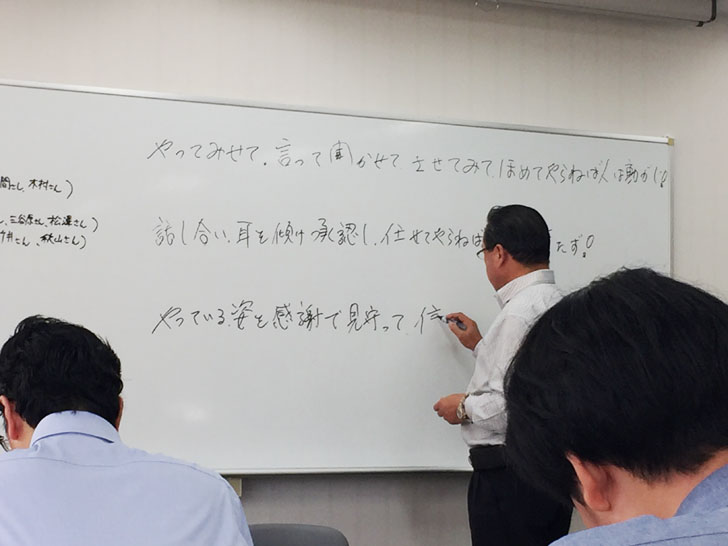 やってみせて、言って聞かせて、させてみて、ほめてやらねば人は動かじ。
間さん、木村さん)
話し合い、耳を傾け承認し、任せてやらねば たず。
さん、松澤さん)
井さん、秋山さん)
やっている、姿を感謝で見守って、信